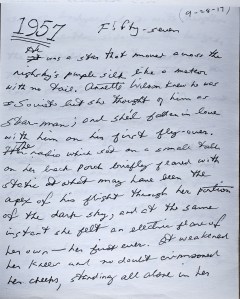 (9-28-17)
1957 Fifty-seven
He was a star that moved across the
nightsky's purple silk like a meteor
with no tail. Annette Wilson knew he was
a Soviet but she thought of him as
Star-man; and she'd fallen in love
with him on his first fly-over.
The radio which sat on a small table
on her back porch briefly flared with
static at what may have been the
apex of his flight through her portion
of the dark sky, and at the same
instant she felt an electric flare of
her own — her first ever. It weakened
her knees and no doubt crimsoned
her cheeks, standing all alone in her